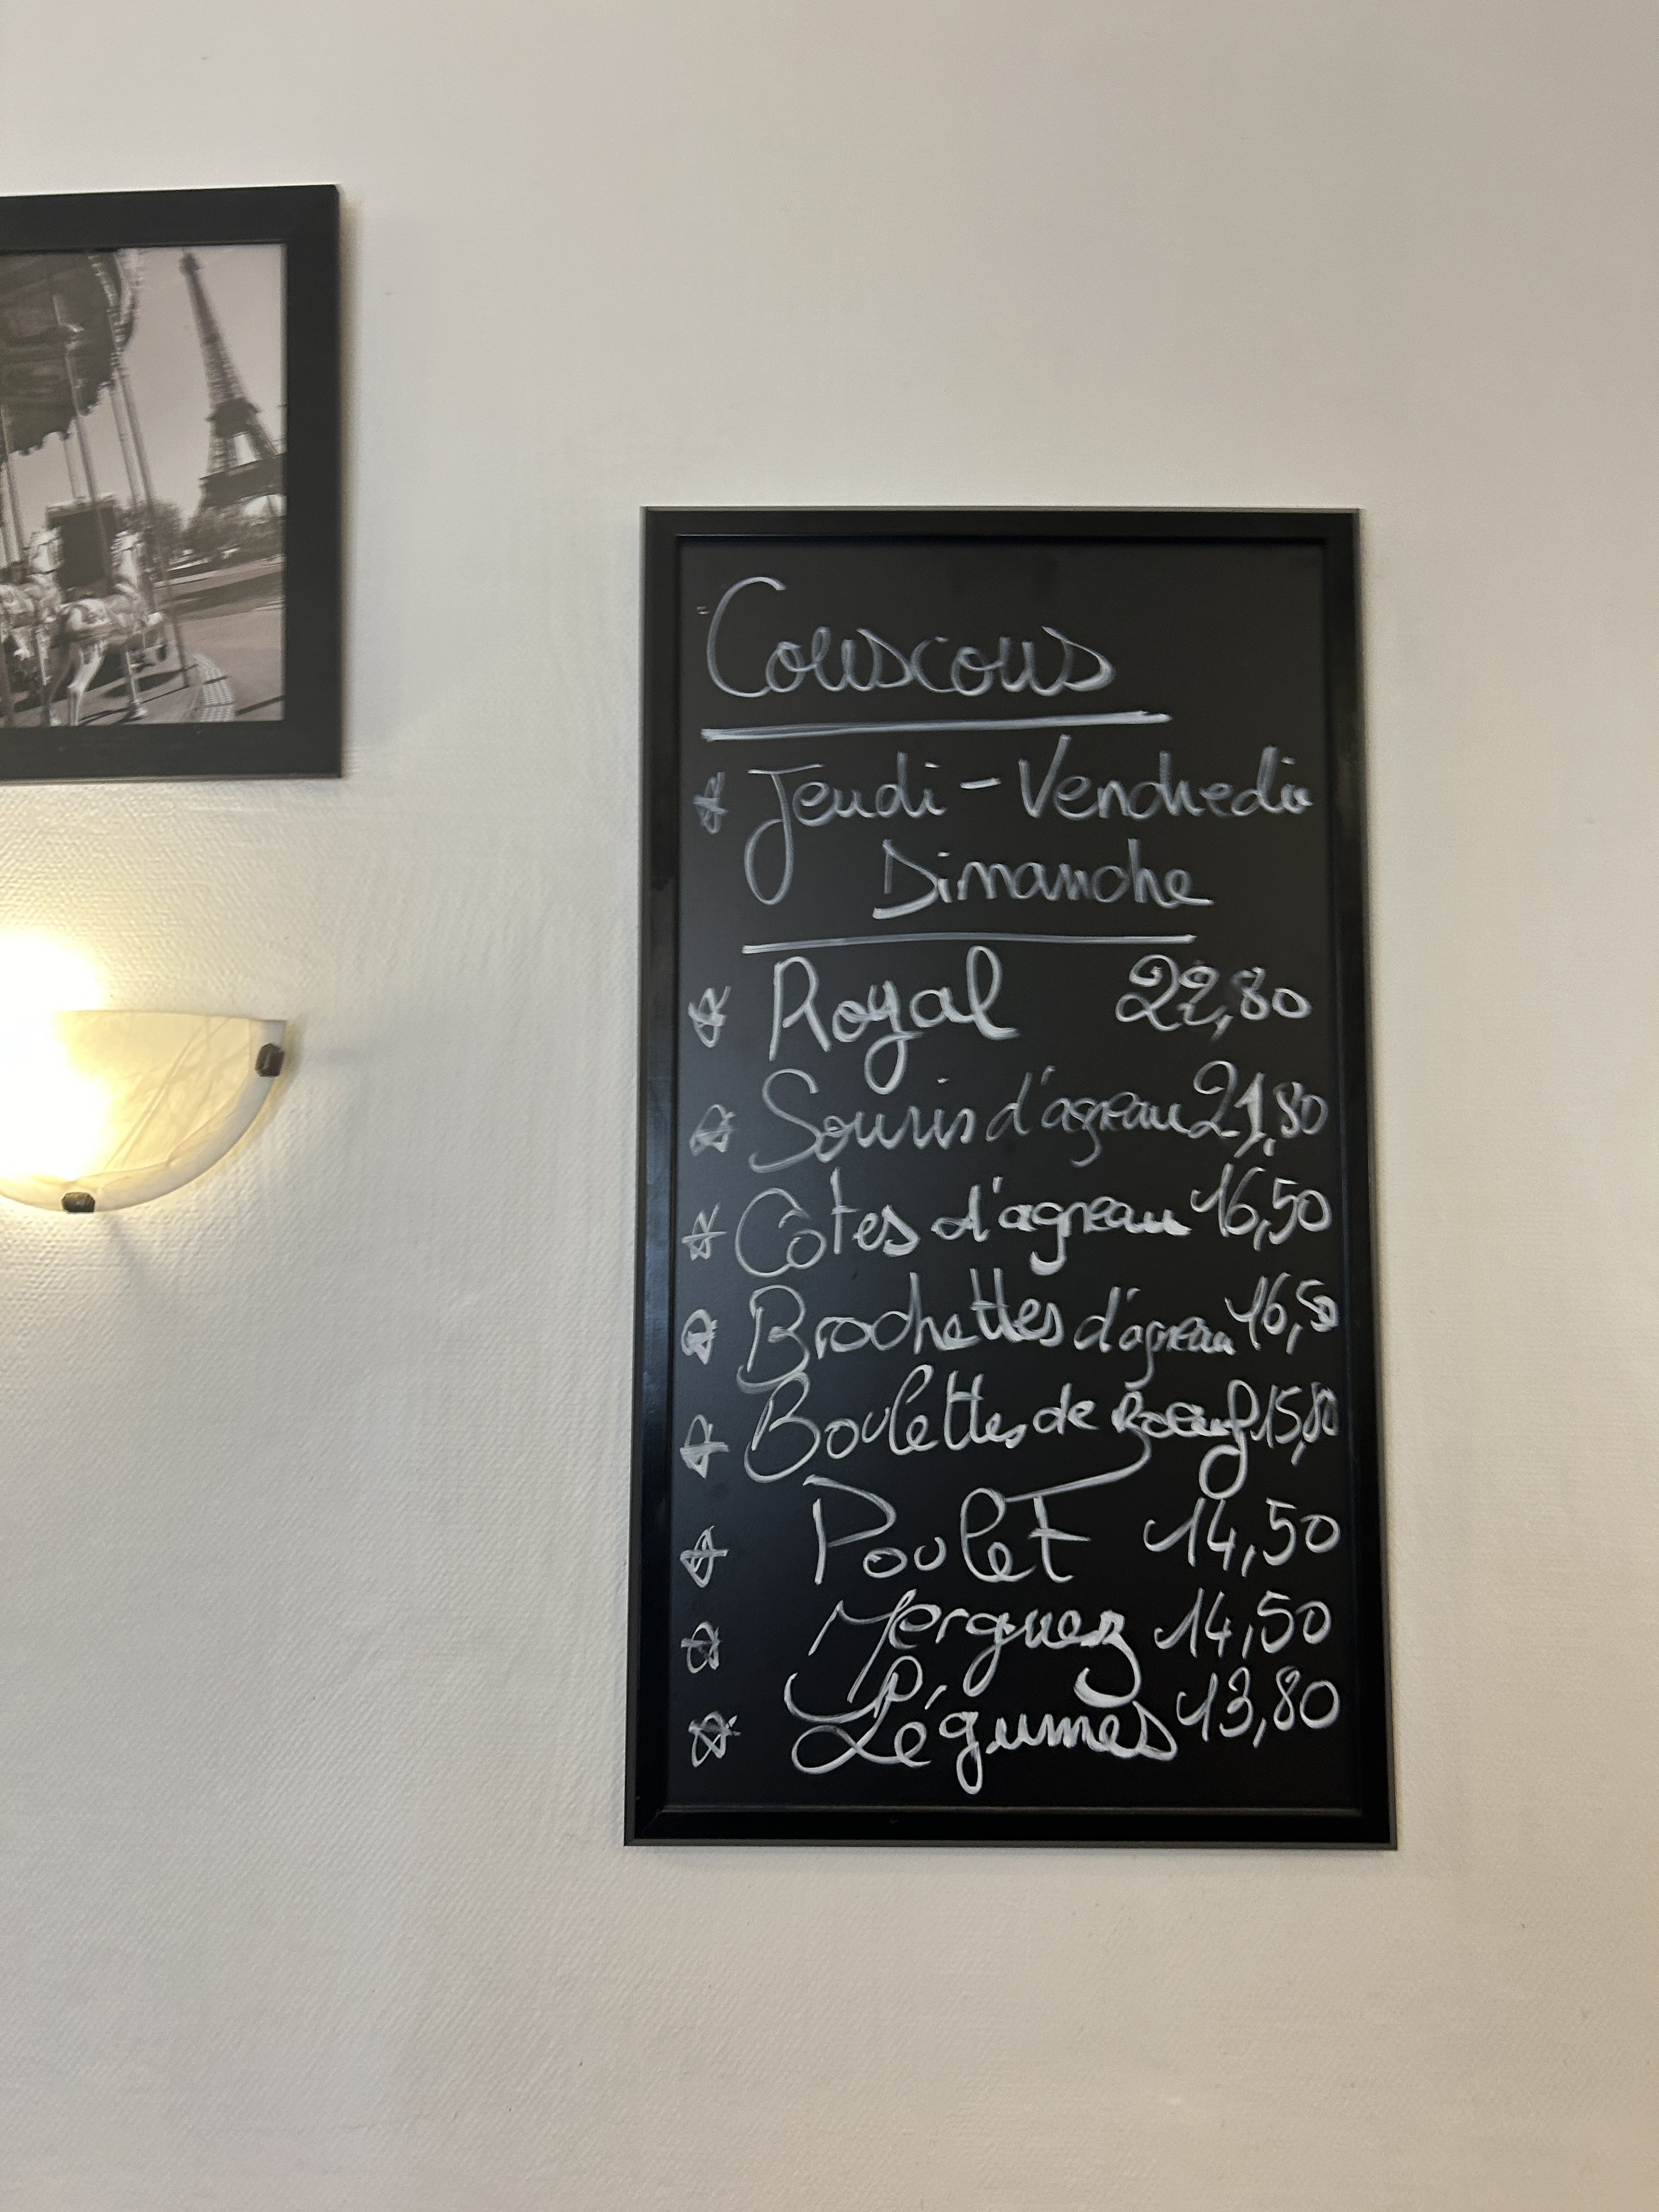 Couscous
Jeudi - Vendredi
Dimanche
Royal 22,80
Souris d'agneau 21,80
Côtes d'agneau 16,50
Brochettes d'agneau 16,50
Boulettes de Boeuf 15,80
Poulet 14,50
Merguez 14,50
Légumes 13,80